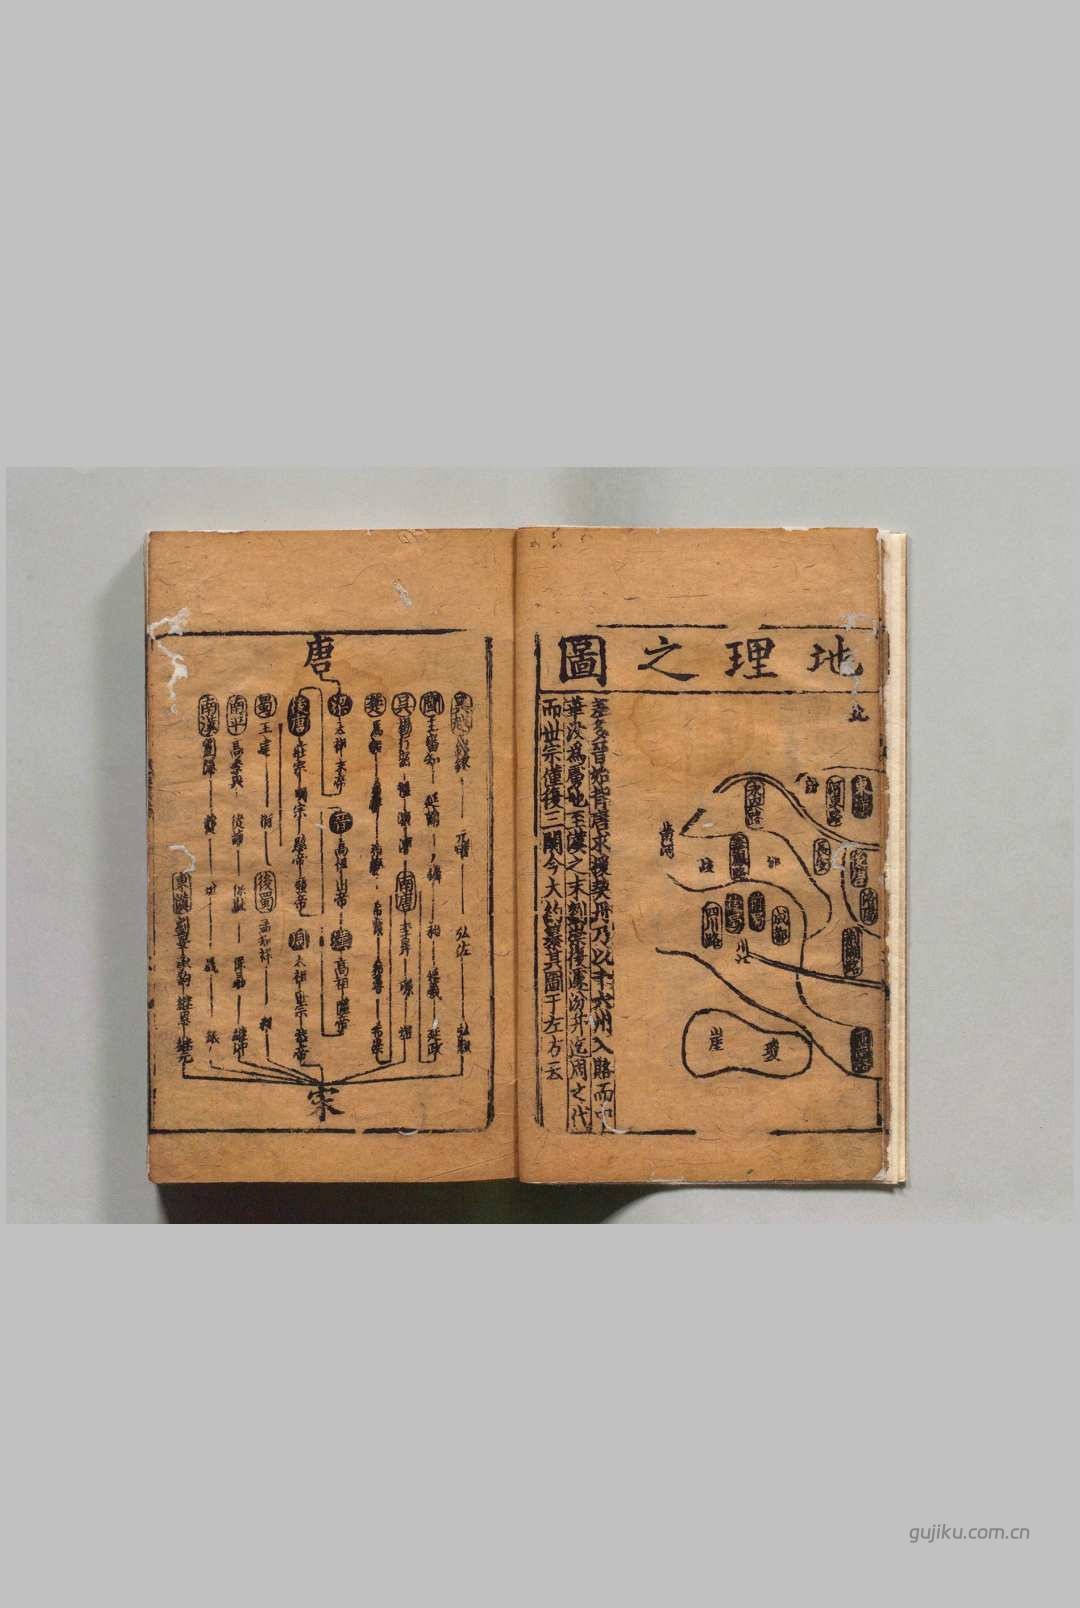 地理之圖
北
東
河東路
汾
永興路
黃河
岐
邠
四川路
成都
川江
瓊
崖
差多晉始昔唐求援契丹乃以十六州入賂而中
華沒爲虜地至漢之末劉崇復據汾并迄周之代
而世宗僅復三關今大約纂其圖于左方云
唐
吳越
元瓘
弘佐
弘俶
閩 王審知
延鈞
昶
延羲
延政
吳 楊行密
渥
溥
南唐 李昪
璟
煜
楚 馬殷
希範
希崇
梁 太祖 末帝
晉 高祖 出帝
漢 高祖 隱帝
後唐 莊宗 明宗 愍帝 廢帝
周 太祖 世宗 恭帝
蜀 王建
衍
後蜀 孟知祥
昶
南平 高季興
從誨
保融
保勗
繼沖
南漢 劉隱
龑
玢
晟
鋹
東漢 劉旻 承鈞 繼恩 繼元
宋
gujiku.com.cn